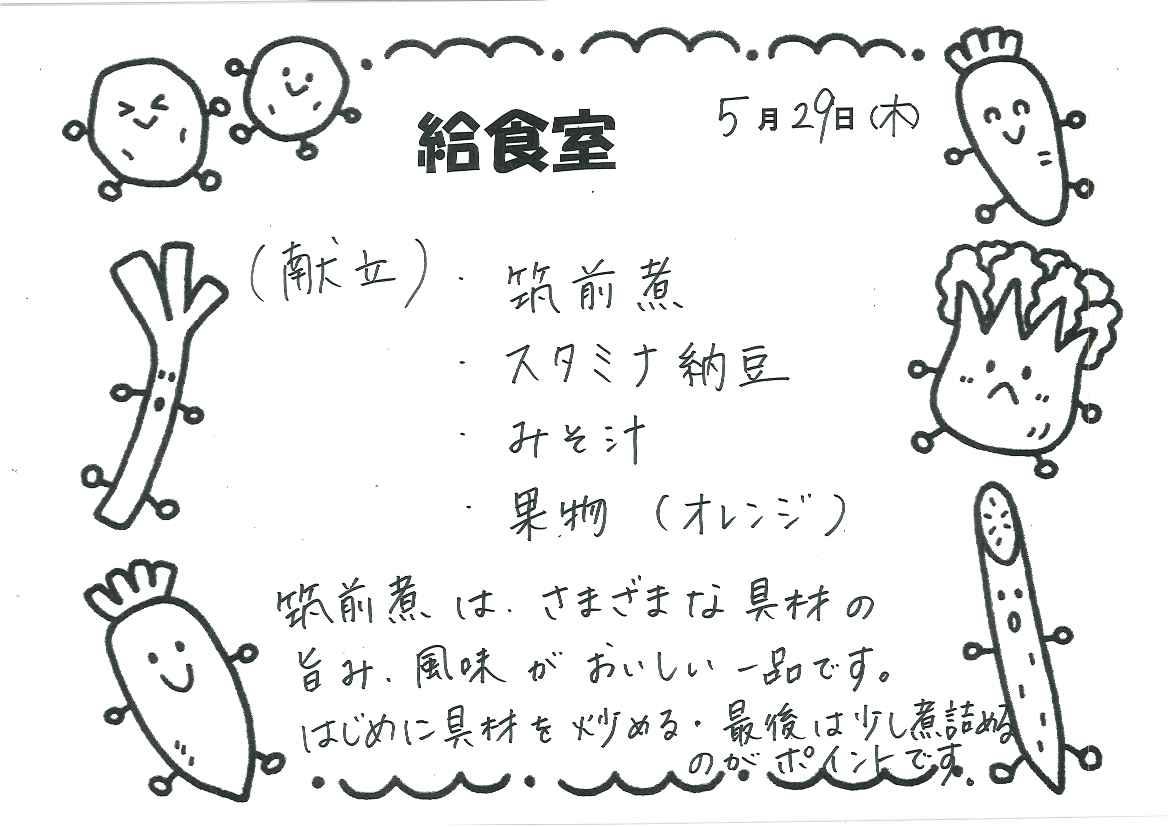 給食室
5月29日(木)
(献立)・筑前煮
・スタミナ納豆
・みそ汁
・果物 (オレンジ)
筑前煮は、さまざまな具材の
旨み、風味がおいしい一品です。
はじめに具材を炒める・最後は少し煮詰める
のがポイントです。